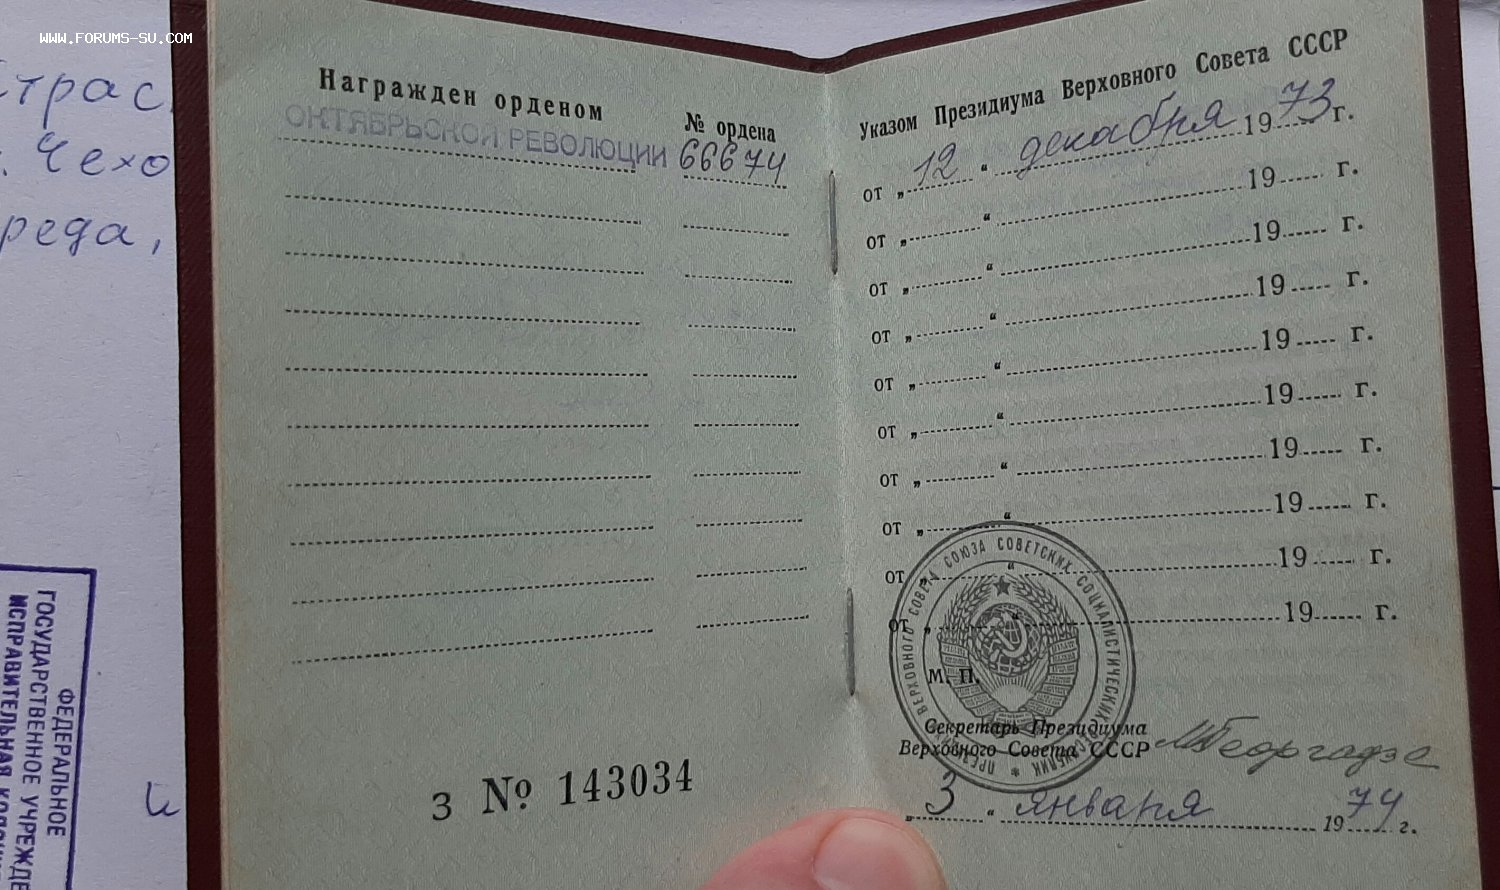 WWW.FORUMS-SU.COM
трас
Чехо
реда,
и
ФЕДЕРАЛЬНОЕ
ГОСУДАРСТВЕННОЕ УЧРЕЖДЕ
ИСПРАВИТЕЛЬНАЯ
Награжден орденом
№ ордена
ОКТЯБРЬСКОЙ РЕВОЛЮЦИИ 66674
З № 143034
Указом Президиума Верховного Совета СССР
от „ 12 “ декабря 1973 г.
от „ “ 19 г.
от „ “ 19 г.
от „ “ 19 г.
от „ “ 19 г.
от „ “ 19 г.
от „ “ 19 г.
от „ “ 19 г.
от „ “ 19 г.
от „ “ 19 г.
М. П.
ПРЕЗИДИУМ ВЕРХОВНОГО СОВЕТА СОЮЗА СОВЕТСКИХ СОЦИАЛИСТИЧЕСКИХ РЕСПУБЛИК *
Секретарь Президиума
Верховного Совета СССР МГеоргадзе
„ 3 “ января 1974 г.